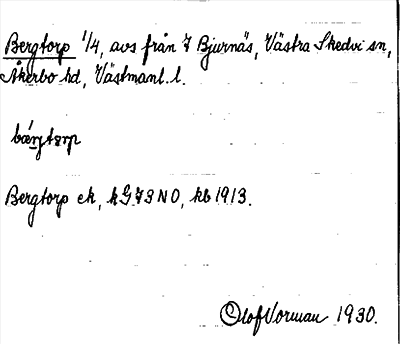 Bergtorp 1/4, avs från 7 Bjurnäs, Västra Skedvi sn,
Åkerbo hd, Västmanl. l.
bærjtɔrp
Bergtorp ek, kG 73 NO, kb 1913.
Olof Vorman 1930.